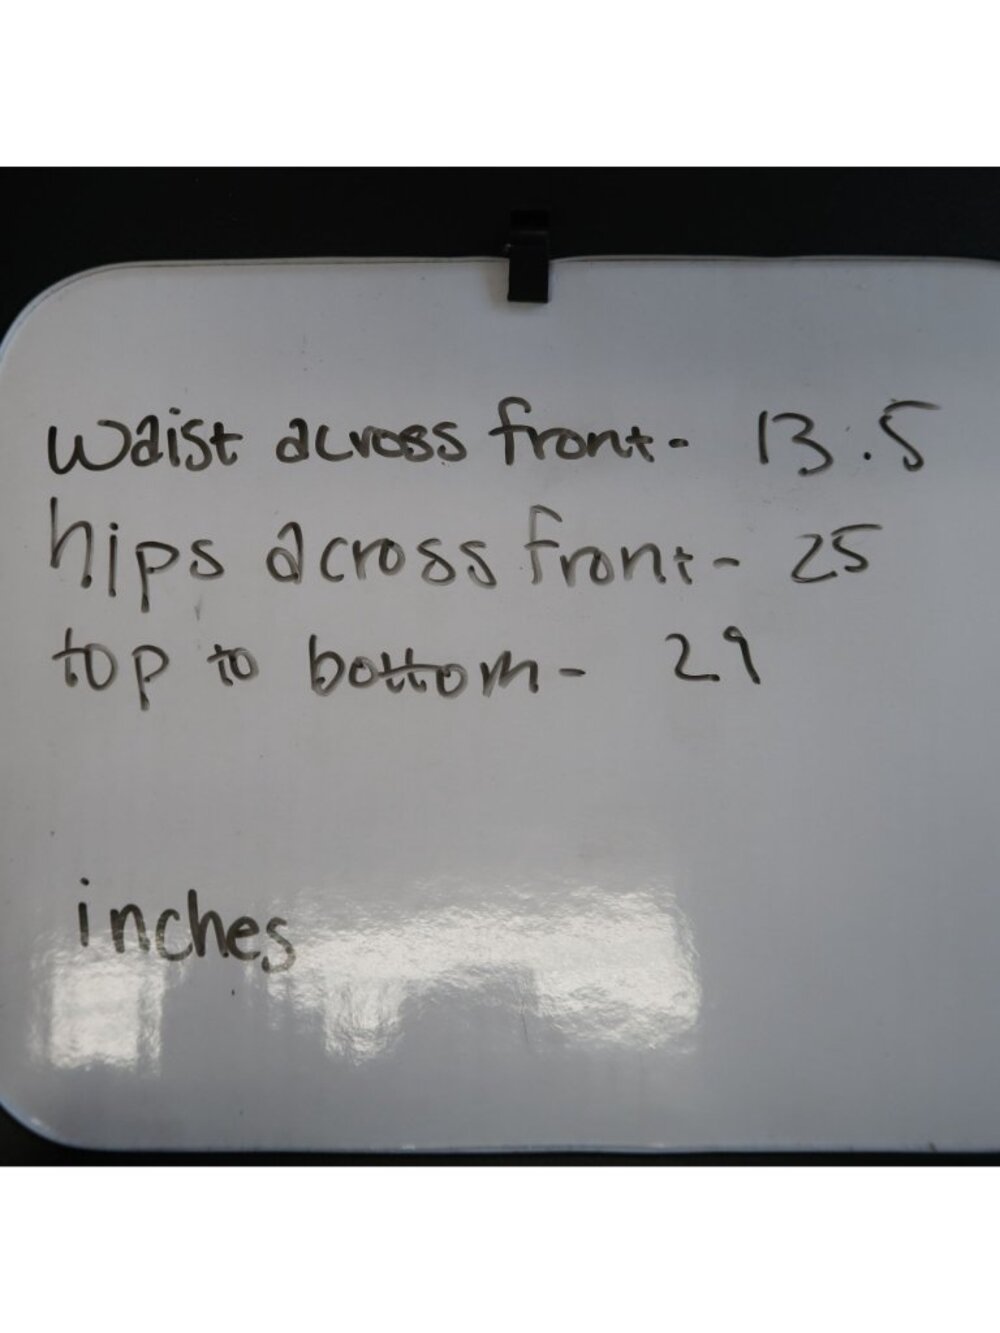 waist across front- 13.5
hips across front- 25
top to bottom- 29
inches